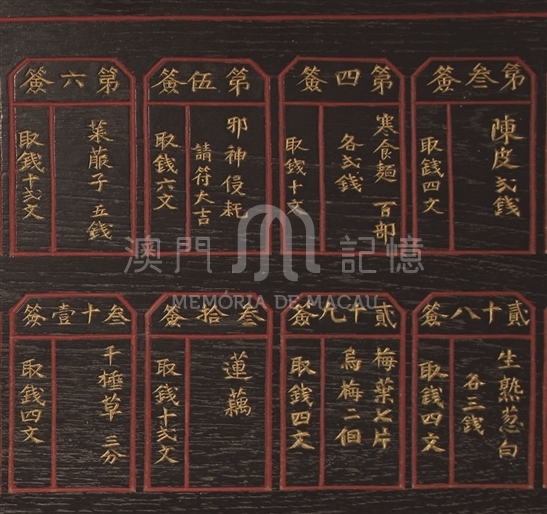 第叁簽
陳皮弍錢
取錢四文
第四簽
寒食麵 百部
各弍錢
取錢十文
第伍簽
邪神侵耗
請符大吉
取錢六文
第六簽
萊菔子 五錢
取錢十弍文
貳十八簽
生熟葱白
各三錢
取錢四文
貳十九簽
梅葉七片
烏梅二個
取錢四文
叁拾簽
蓮藕
取錢十弍文
叁十壹簽
千搥草 三分
取錢四文
澳門記憶
MEMÓRIA DE MACAU